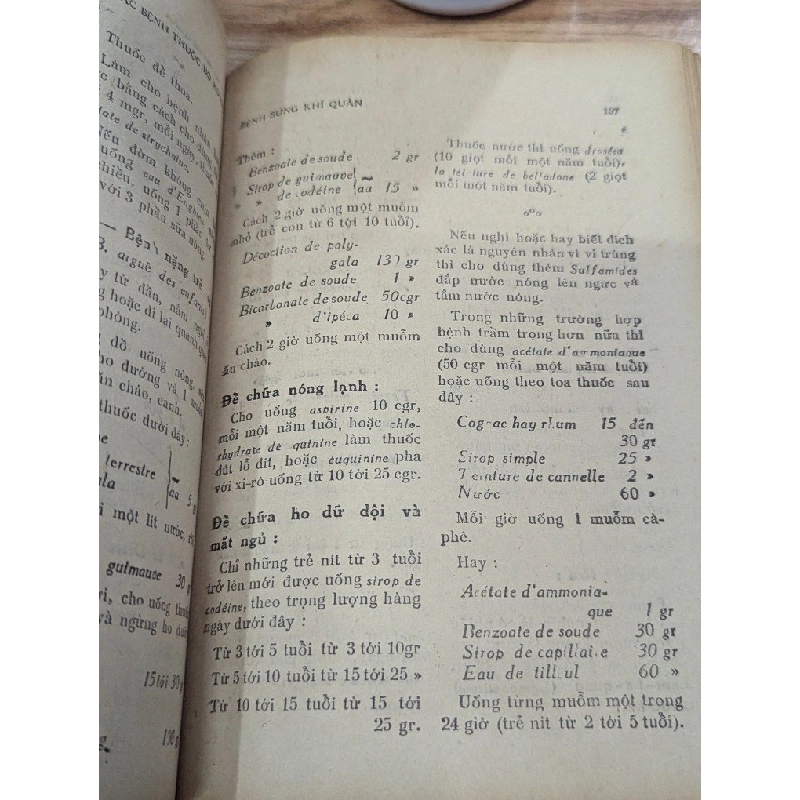 ÁC BỆNH THUỘC BỘ
Thuốc để thoa.
Làm cho bệnh nhân
bằng cách cho
4 mgr, mỗi ngày
Nếu đờm không
uống
chiều, uống 1 phần
với 3 phần sữa nóng
— Bệnh nặng
phòng.
đồ uống nóng
ho đường và 1
ăn cháo, canh.
thuốc dưới đây:
terrestre
ala
aa 5
i một lít nước,
guimauve 30 g
ri, cho uống
và ngừng ho
15 tới 30 g
130 g
BỆNH SƯNG KHÍ QUẢN
Thêm :
Benzoate de soude 2 gr
Sirop de guimauve
» » de codéine aa 15 »
Cách 2 giờ uống một muỗm
nhỏ (trẻ con từ 6 tới 10 tuổi).
Décoction de poly-
gala 130 gr
Benzoate de soude 1 »
Bicarbonate de soude 50 cgr
» d'ipéca 10 »
Cách 2 giờ uống một muỗm
ăn cháo.
Để chữa nóng lạnh :
Cho uống aspirine 10 cgr,
mỗi một năm tuổi, hoặc chlo-
rhydrate de quinine làm thuốc
đút lỗ đít, hoặc euquinine pha
với xi-rô uống từ 10 tới 25 cgr.
Để chữa ho dữ dội và
mất ngủ :
Chỉ những trẻ nít từ 3 tuổi
trở lên mới được uống sirop de
codéine, theo trọng lượng hàng
ngày dưới đây :
Từ 3 tới 5 tuổi từ 3 tới 10gr
Từ 5 tới 10 tuổi từ 15 tới 25 »
Từ 10 tới 15 tuổi từ 15 tới
25 gr.
Thuốc nước thì uống droséra
(10 giọt mỗi một năm tuổi),
la teinture de belladone (2 giọt
mỗi một năm tuổi).
Nếu nghi hoặc hay biết đích
xác là nguyên nhân vì vi trùng
thì cho dùng thêm Sulfamides
đắp nước nóng lên ngực và
tắm nước nóng.
Trong những trường hợp
bệnh trầm trọng hơn nữa thì
cho dùng acétate d'ammoniaque
(50 cgr mỗi một năm tuổi)
hoặc uống theo toa thuốc sau
đây :
Cognac hay rhum 15 đến
30 gr
Sirop simple 25 »
Teinture de cannelle 2 »
Nước 60 »
Mỗi giờ uống 1 muỗm cà-
phê.
Hay :
Acétate d'ammonia-
que 1 gr
Benzoate de soude 30 gr
Sirop de capillaire 30 gr
Eau de tilleul 60 »
Uống từng muỗm một trong
24 giờ (trẻ nít từ 2 tới 5 tuổi).